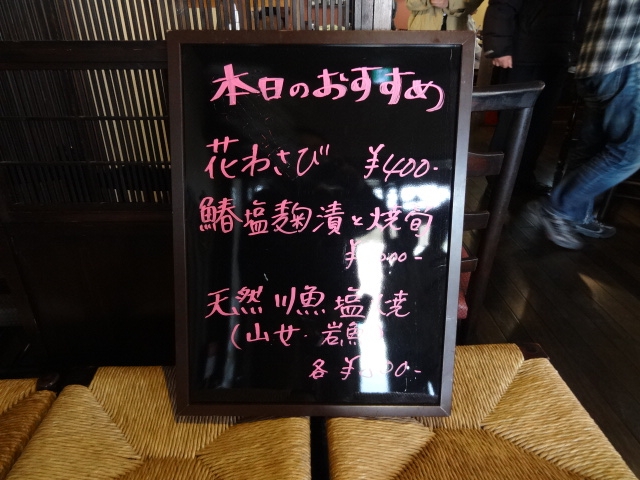 本日のおすすめ
花わさび ¥400-
鰆塩麹漬と焼旬
天然川魚塩焼
(山女・岩魚
各